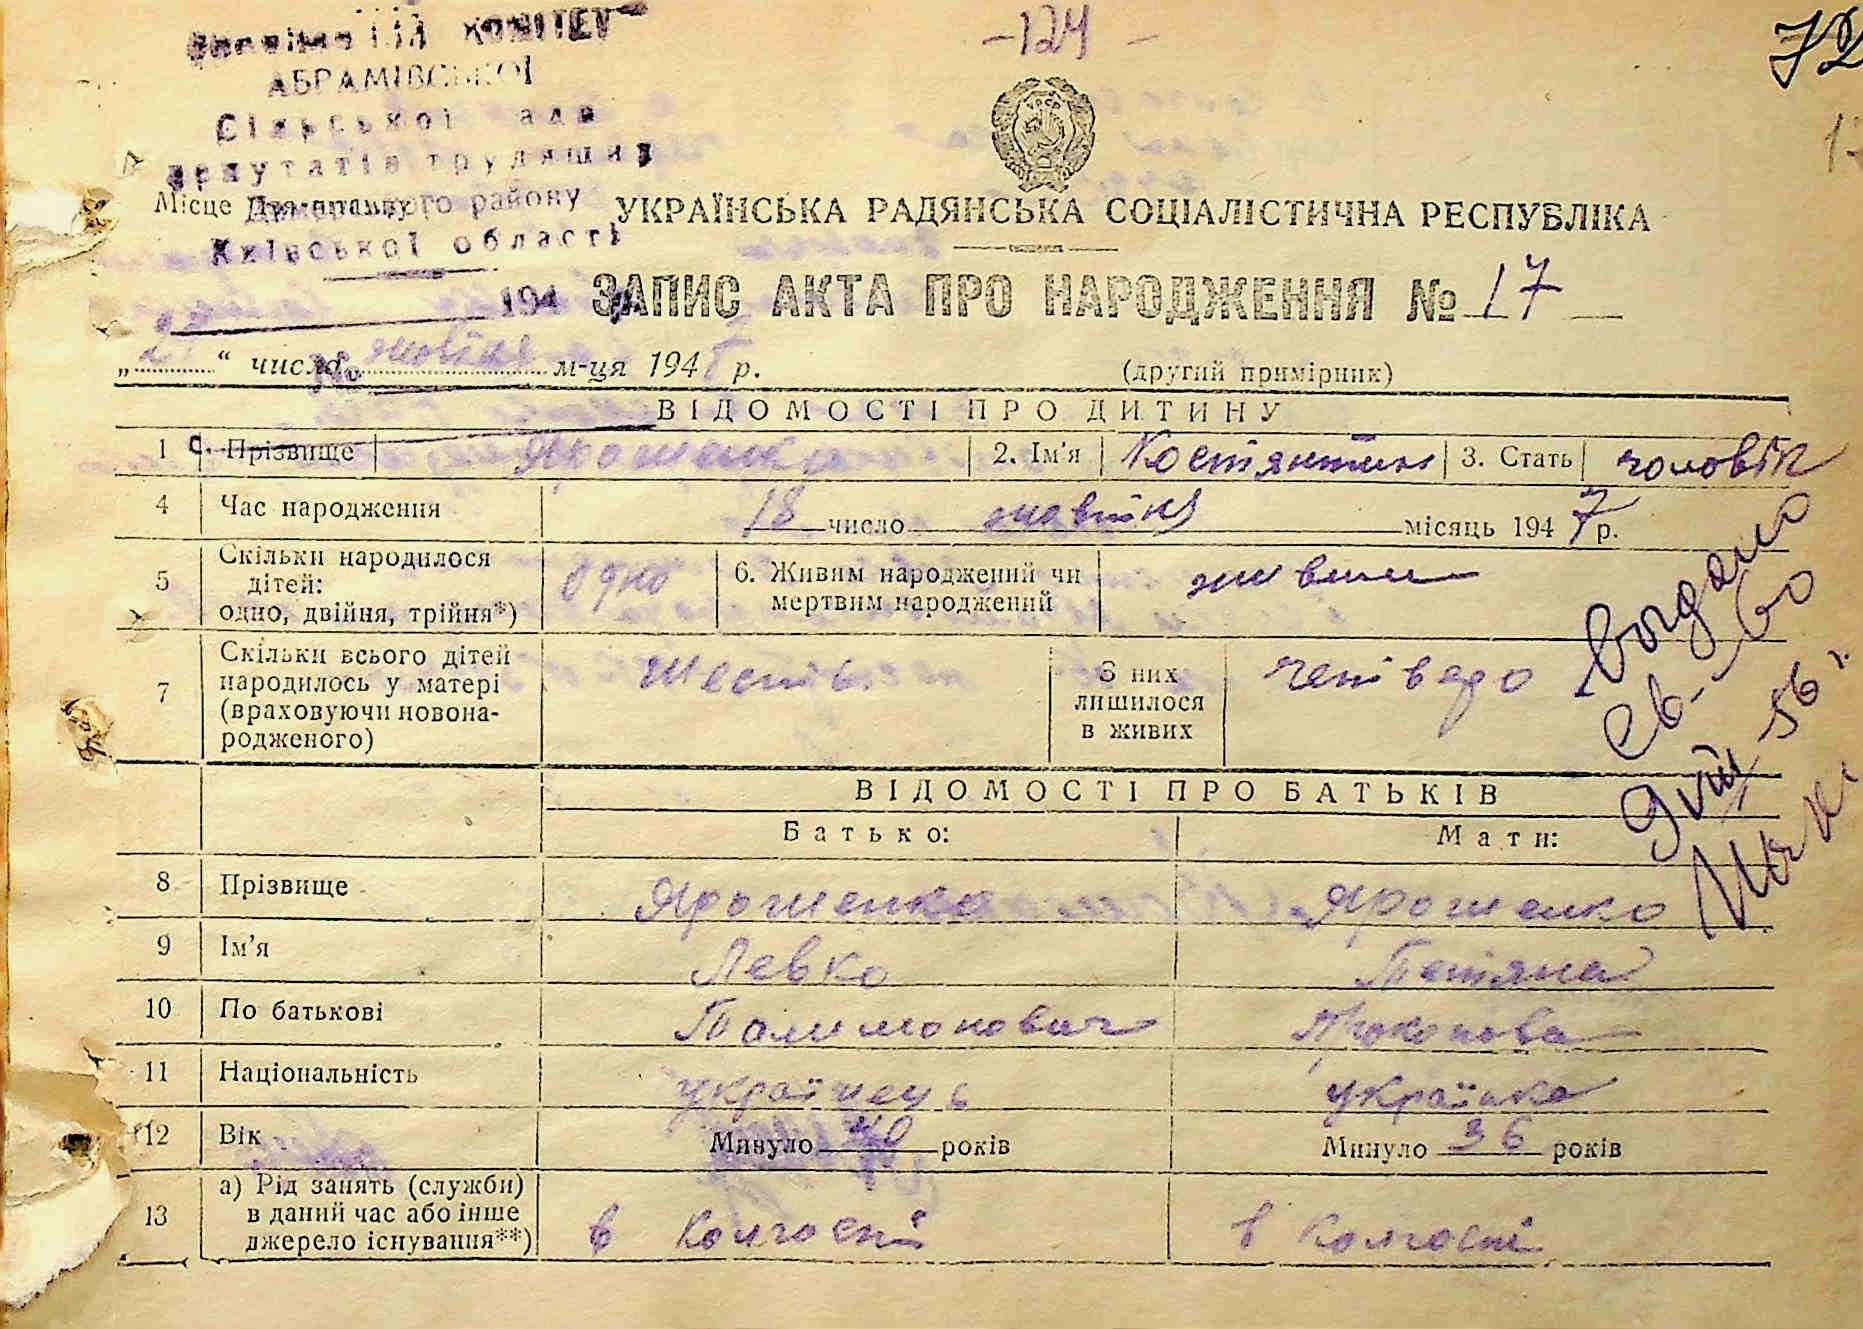 -124-
72
КОМІТЕТ
АБРАМІВСЬКОЇ
Сільської ради
депутатів трудящих
Місце для штампу
району
Київської області
УРСР
УКРАЇНСЬКА РАДЯНСЬКА СОЦІАЛІСТИЧНА РЕСПУБЛІКА
194
ЗАПИС АКТА ПРО НАРОДЖЕННЯ № 17
„ “ числа жовтня м-ця 194 р.
№
(другий примірник)
ВІДОМОСТІ ПРО ДИТИНУ
1 Прізвище Ярошенко 2. Ім'я Костянтин 3. Стать чоловік
4 Час народження 18 число жовтня місяць 1947 р.
5 Скільки народилося дітей: одно, двійня, трійня*) одно 6. Живим народжений чи мертвим народжений живим
7 Скільки всього дітей народилось у матері (враховуючи новонародженого) шесть З них лишилося в живих четверо
Видано
св-во
56 г.
ВІДОМОСТІ ПРО БАТЬКІВ
Батько: Мати:
8 Прізвище Ярошенко Ярошенко
9 Ім'я Левко Тетяна
10 По батькові Прокопова
11 Національність українець українка
12 Вік Минуло 40 років Минуло 36 років
13 а) Рід занять (служби) в даний час або інше джерело існування**) в колгоспі в колгоспі